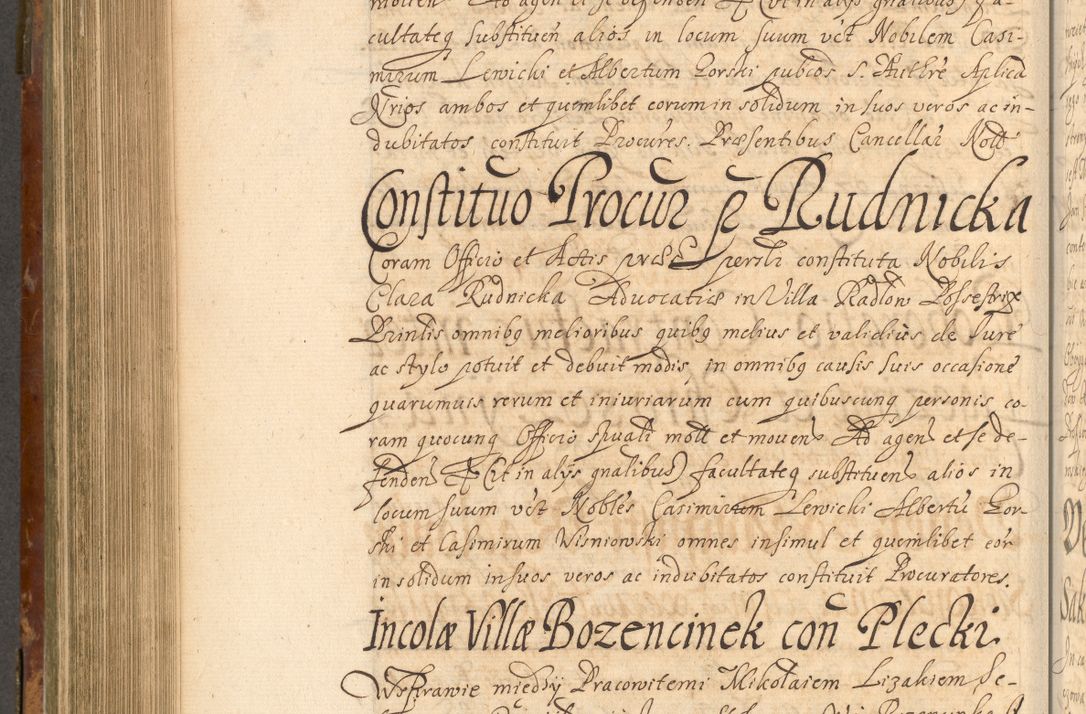 cultateq substituen̄ alios in locum suum vc̄t Nobilem Casi-
mirum Lewicki et Albertum Gorski pubcos S. Authre Aplica
Nrios ambos et quemlibet eorum in solidum in suos veros ac in-
dubitatos constituit Procures. Præsentibus Cancellar Nott
Constituo Procur p Rudnicka
Coram Officio et Actis præ persli constituta Nobilis
Clara Rudnicka Advocatiæ in Villa Radlow Possestrix
Prinlis omnibq melioribus quibq melius et validius de Iure
ac stylo potuit et debuit modis, in omnibq causis suis occasione
quarumvis rerum et iniuriarum cum quibuscunq personis co-
ram quocunq Officio spuali mott et moven Ad agen et se de-
fenden & (ut in alys gnalibus) facultateq substituen alios in
locum suum vc̄t Nobles Casimirum Lewicki Albertu Gor-
ski et Casimirum Wisniowski omnes insimul et quemlibet eor
in solidum in suos veros ac indubitatos constituit Procuratores.
Incolæ Villæ Bozencinek con̄ Plecki
W Sprawie między Pracowitemi Mikołaiem Lizakiem Se-